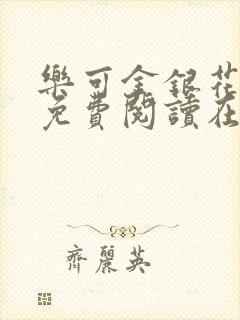 樂可金銀花
免費閱讀在
齊麗英